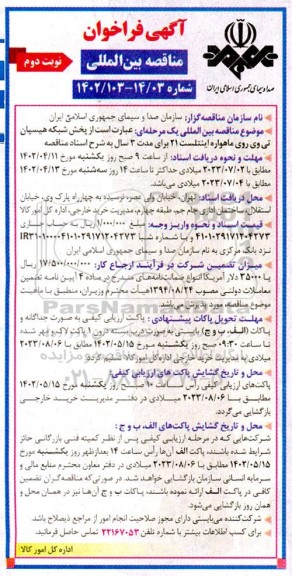 آگهی فراخوان
مناقصه بین‌المللی
نوبت دوم
شماره ۱۴/۰۳-۱۴۰۲/۱۰۳
صدا و سیمای جمهوری اسلامی ایران
نام سازمان مناقصه‌گزار: سازمان صدا و سیمای جمهوری اسلامی ایران
موضوع مناقصه بین‌المللی یک مرحله‌ای: عبارت است از پخش شبکه هیسپان
تی وی روی ماهواره اینتلست ۲۱ برای مدت ۳ سال به شرح اسناد مناقصه
مهلت و نحوه دریافت اسناد: از ساعت ۹ صبح روز یکشنبه مورخ ۱۴۰۲/۰۴/۱۱
مطابق با ۲۰۲۳/۰۷/۰۲ میلادی حداکثر تا ساعت ۱۴ روز سه‌شنبه مورخ ۱۴۰۲/۰۴/۱۳
مطابق با ۲۰۲۳/۰۷/۰۴ میلادی می‌باشد.
محل دریافت اسناد: تهران، خیابان ولی عصر، نرسیده به چهارراه پارک وی، خیابان
استقلال، ساختمان اداری جام جم، طبقه چهارم، مدیریت خرید خارجی، اداره کل امور کالا
قیمت اسناد و نحوه واریز وجه: مبلغ ریال به حساب جاری
نزد بانک مرکزی به نام سازمان صدا و سیمای جمهوری اسلامی ایران
میزان تضمین شرکت در فرآیند ارجاع کار: ۱۷/۵۰۰/۰۰۰/۰۰۰ ریال
یا ۳۵۰۰۰ دلار آمریکا انواع ضمانت‌نامه‌های مندرج در ماده ۴ آیین نامه تضمین
معاملات دولتی مصوب ۱۳۹۴/۰۸/۲۴ محترم وزیران، منطبق با ماهیت
موضوع مناقصه، مورد پذیرش می‌باشد.
مهلت تحویل پاکات پیشنهادی: پاکت ارزیابی کیفی به صورت جداگانه و
پاکات (الف، ب و ج) بایستی به صورت دربسته درون ۱ پاکت لاک و مهر شده
تا ساعت ۰۹:۳۰ صبح روز یکشنبه مورخ ۱۴۰۲/۰۵/۱۵ مطابق با ۲۰۲۳/۰۸/۰۶
میلادی به مدیریت خرید خارجی اداره کل امور کالا تسلیم گردد.
محل و تاریخ گشایش پاکت های ارزیابی کیفی:
پاکت‌های ارزیابی کیفی رأس ساعت ۱۰ صبح روز یکشنبه مورخ ۱۴۰۲/۰۵/۱۵
مطابق با ۲۰۲۳/۰۸/۰۶ میلادی در دفتر مدیریت خرید خارجی
بازگشایی می‌گردد.
محل و تاریخ گشایش پاکت‌های الف ب و ج:
شرکت‌هایی که در مرحله ارزیابی کیفی پس از نظر کمیته فنی بازرگانی حائز
شرایط شده باشند، پاکت الف آن‌ها رأس ساعت ۱۴ بعدازظهر روز یکشنبه مورخ
۱۴۰۲/۰۵/۱۵ مطابق با ۲۰۲۳/۰۸/۰۶ میلادی در دفتر معاون محترم منابع مالی و
سرمایه انسانی سازمان بازگشایی خواهد شد. در صورتی که مناقصه‌گران تضمین
کافی در پاکت الف ارائه نموده باشند، پاکات ب و ج آن‌ها نیز در همان محل و
همان روز بازگشایی می‌شود.
شرکت‌کننده می‌بایستی دارای مجوز صلاحیت انجام امور از مراجع ذیصلاح باشد.
برای کسب اطلاعات بیشتر با شماره تلفن ۲۲۱۶۷۰۵۳ تماس حاصل فرمائید.
اداره کل امور کالا